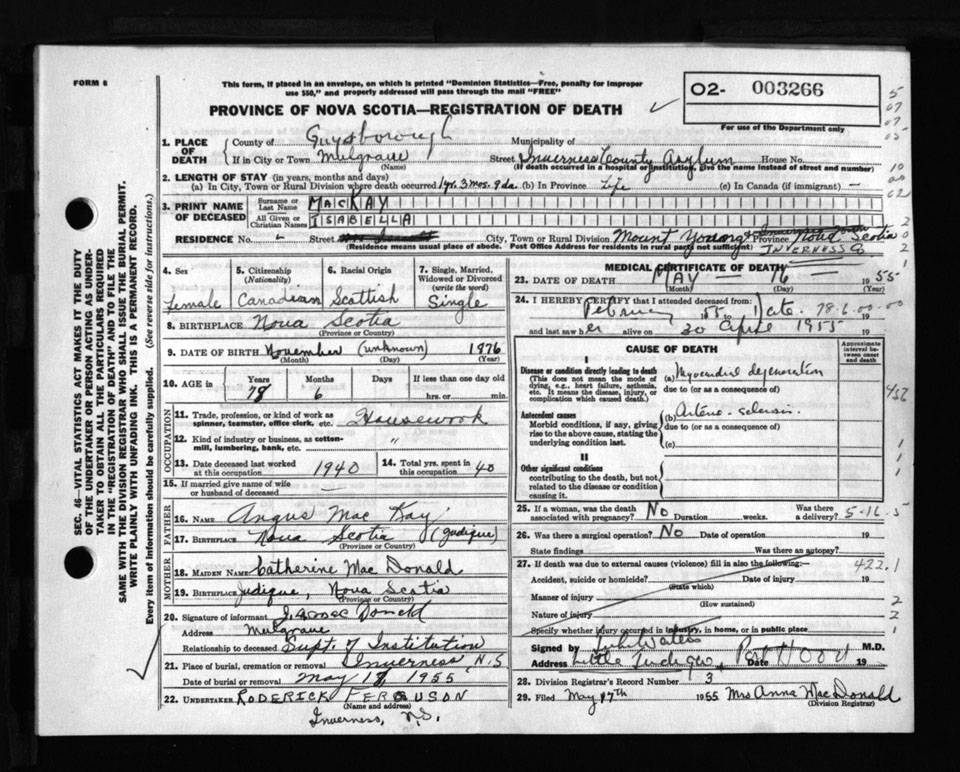 FORM 6
This form, if placed in an envelope, on which is printed "Dominion Statistics—Free, penalty for improper
use $50," and properly addressed will pass through the mail "FREE"
PROVINCE OF NOVA SCOTIA—REGISTRATION OF DEATH
O2- 003266
For use of the Department only
1. PLACE OF DEATH
County of Guysborough Municipality of
If in City or Town Mulgrave Street Inverness County Asylum House No.
(Name) (If death occurred in a hospital or institution, give the name instead of street and number)
2. LENGTH OF STAY (in years, months and days)
(a) In City, Town or Rural Division where death occurred 1 yr. 3 mos. 9 da. (b) In Province Life (c) In Canada (if immigrant) —
3. PRINT NAME OF DECEASED
Surname or Last Name MACKAY
All Given or Christian Names ISABELLA
RESIDENCE No. Street City, Town or Rural Division Mount Young Province Nova Scotia
(Residence means usual place of abode. Post Office Address for residents in rural parts not sufficient) INVERNESS CO
4. Sex Female
5. Citizenship (Nationality) Canadian
6. Racial Origin Scottish
7. Single, Married, Widowed or Divorced (write the word) Single
8. BIRTHPLACE Nova Scotia
(Province or Country)
9. DATE OF BIRTH November (unknown) 1876
(Month) (Day) (Year)
10. AGE in Years 78 Months 6 Days If less than one day old hrs. or min.
OCCUPATION
11. Trade, profession, or kind of work as spinner, teamster, office clerk, etc. Housework
12. Kind of industry or business, as cotton-mill, lumbering, bank, etc. "
13. Date deceased last worked at this occupation 1940
14. Total yrs. spent in this occupation 40
15. If married give name of wife or husband of deceased —
FATHER
16. NAME Angus Mac Kay
17. BIRTHPLACE Nova Scotia (Judique)
(Province or Country)
MOTHER
18. MAIDEN NAME Catherine Mac Donald
19. BIRTHPLACE Judique, Nova Scotia
(Province or Country)
20. Signature of informant
Address Mulgrave
Relationship to deceased Supt. of Institution
21. Place of burial, cremation or removal Inverness, N.S
Date of burial or removal May 1955
22. UNDERTAKER RODERICK FERGUSON
(Name and address)
Inverness, N.S.
MEDICAL CERTIFICATE OF DEATH
23. DATE OF DEATH MAY 16 1955
(Month) (Day) (Year)
24. I HEREBY CERTIFY that I attended deceased from:
February 55 to date. 78-6-00-00
and last saw her alive on 30 April 1955 19
CAUSE OF DEATH
Approximate interval between onset and death
I
Disease or condition directly leading to death (a) Myocardial degeneration
(This does not mean the mode of dying, e.g., heart failure, asthenia, etc. It means the disease, injury or complication which caused death.)
due to (or as a consequence of)
Antecedent causes (b) Arterio-sclerosis.
Morbid conditions, if any, giving rise to the above cause, stating the underlying condition last.
due to (or as a consequence of)
(c)
II
Other significant conditions contributing to the death, but not related to the disease or condition causing it.
25. If a woman, was the death associated with pregnancy? No Duration weeks. Was there a delivery? 5-16-5
26. Was there a surgical operation? No Date of operation 19
State findings Was there an autopsy?
27. If death was due to external causes (violence) fill in also the following:— 422.1
Accident, suicide or homicide? Date of injury 19
(State which)
Manner of injury
(How sustained)
Nature of injury
Specify whether injury occurred in industry, in home, or in public place
Signed by M.D.
Address Little Judique Port Hood Date 19
28. Division Registrar's Record Number 3
29. Filed May 17th 1955 Mrs Anna MacDonald
(Division Registrar)
SEC. 46—VITAL STATISTICS ACT MAKES IT THE DUTY
OF THE UNDERTAKER OR PERSON ACTING AS UNDER-
TAKER TO OBTAIN ALL THE PARTICULARS REQUIRED
IN THE "REGISTRATION OF DEATH" AND TO FILE THE
SAME WITH THE DIVISION REGISTRAR WHO SHALL ISSUE THE BURIAL PERMIT.
WRITE PLAINLY WITH UNFADING INK. THIS IS A PERMANENT RECORD.
Every item of information should be carefully supplied. (See reverse side for instructions.)